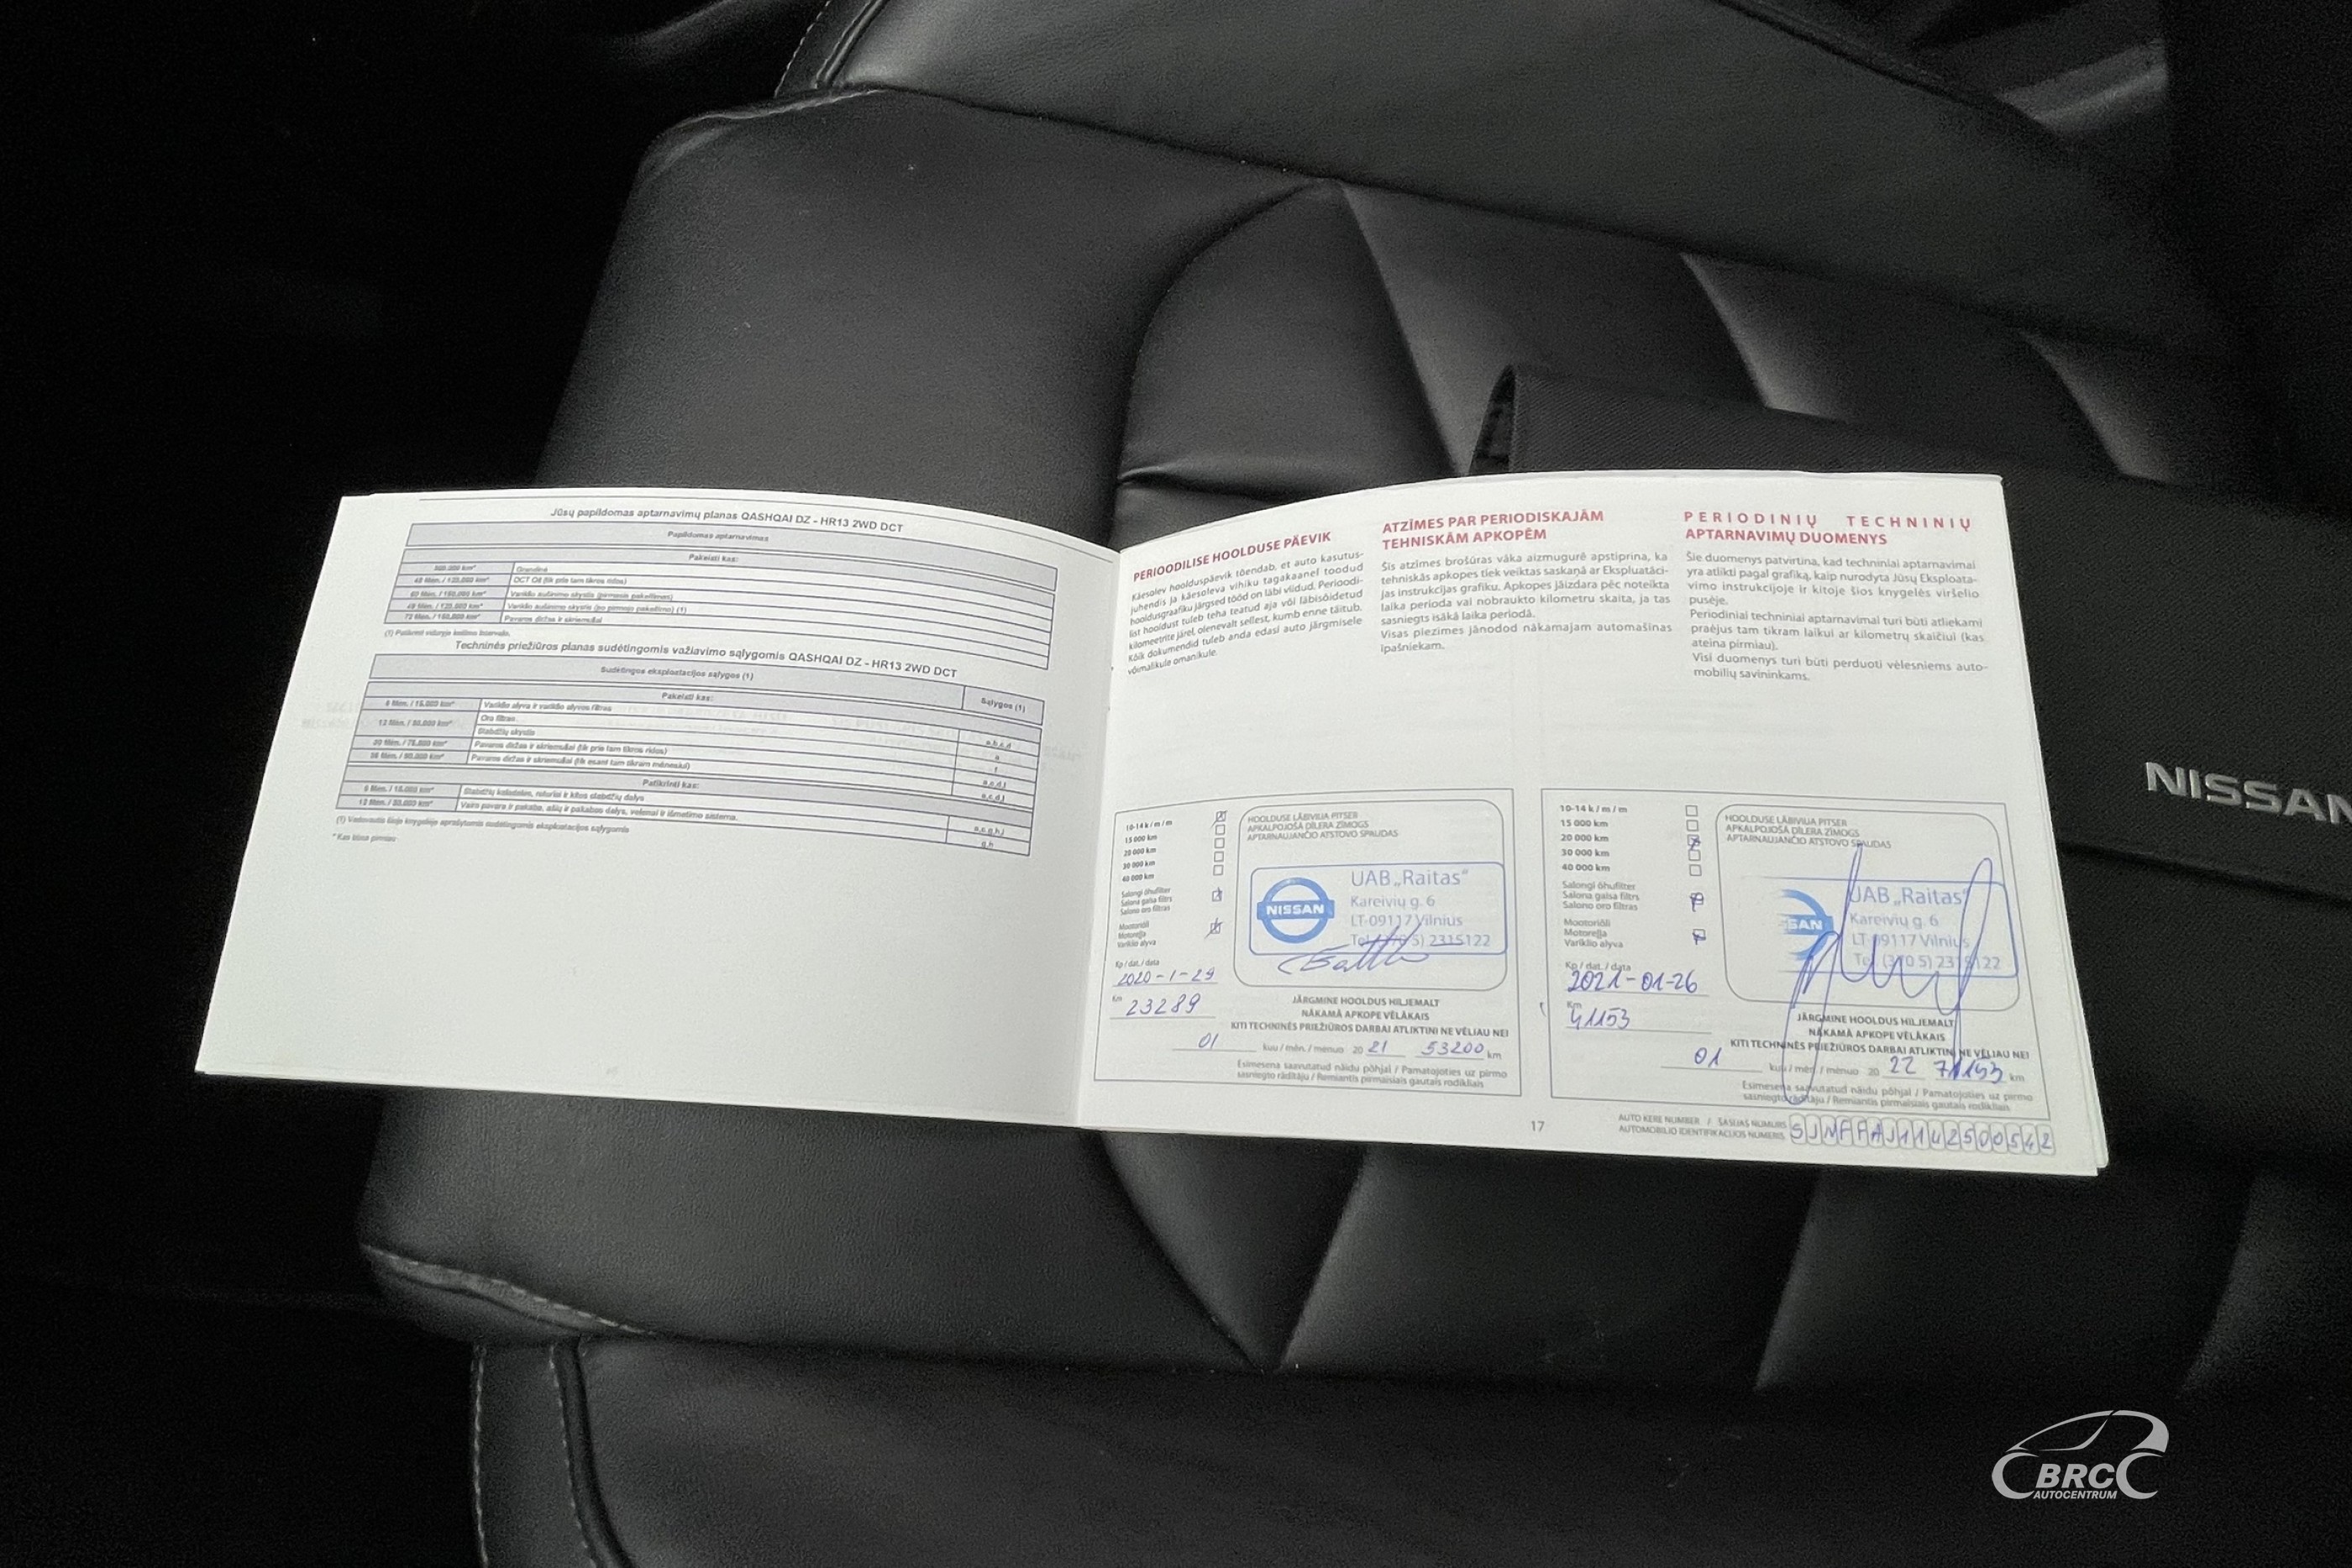 Jūsų papildomas aptarnavimų planas QASHQAI DZ - HR13 2WD DCT
Papildomas aptarnavimas
Pakeisti kas:
Grandinė
48 Mėn. / 120,000 km* DCT Oil (tik prie tam tikros ridos)
Variklio aušinimo skystis (pirmasis pakeitimas)
Variklio aušinimo skystis (po pirmojo pakeitimo) (1)
Pavaros diržas ir skriemuliai
Techninės priežiūros planas sudėtingomis važiavimo sąlygomis QASHQAI DZ - HR13 2WD DCT
Sudėtingos eksploatacijos sąlygos (1) Sąlygos (1)
Pakeisti kas:
6 Mėn. / 15.000 km* Variklio alyva ir variklio alyvos filtras
Oro filtras
12 Mėn. / 30.000 km* Stabdžių skystis
Pavaros diržas ir skriemuliai (tik prie tam tikros ridos)
Pavaros diržas ir skriemuliai (tik esant tam tikram mėnesiui)
Patikrinti kas:
6 Mėn. / 15.000 km* Stabdžių kaladėlės, rotoriai ir kitos stabdžių dalys
12 Mėn. / 30.000 km* Vairo pavara ir pakaba, ašių ir pakabos dalys, velenai ir išmetimo sistema.
* Kas būna pirmiau
PERIOODILISE HOOLDUSE PÄEVIK
Käesolev hoolduspäevik tõendab, et auto kasutus-
juhendis ja käesoleva vihiku tagakaanel toodud
hooldusgraafiku järgsed tööd on läbi viidud. Perioodi-
list hooldust tuleb teha teatud aja või läbisõidetud
kilomeetrite järel, olenevalt sellest, kumb enne täitub.
Kõik dokumendid tuleb anda edasi auto järgmisele
võimalikule omanikule.
ATZĪMES PAR PERIODISKAJĀM
TEHNISKĀM APKOPĒM
Šīs atzīmes brošūras vāka aizmugurē apstiprina, ka
tehniskās apkopes tiek veiktas saskaņā ar Ekspluatāci-
jas instrukcijas grafiku. Apkopes jāizdara pēc noteikta
laika perioda vai nobraukto kilometru skaita, ja tas
sasniegts īsākā laika periodā.
Visas piezīmes jānodod nākamajam automašīnas
īpašniekam.
PERIODINIŲ TECHNINIŲ
APTARNAVIMŲ DUOMENYS
Šie duomenys patvirtina, kad techniniai aptarnavimai
yra atlikti pagal grafiką, kaip nurodyta Jūsų Eksploata-
vimo instrukcijoje ir kitoje šios knygelės viršelio
pusėje.
Periodiniai techniniai aptarnavimai turi būti atliekami
praėjus tam tikram laikui ar kilometrų skaičiui (kas
ateina pirmiau).
Visi duomenys turi būti perduoti vėlesniems auto-
mobilių savininkams.
10-14 k / m / m
15 000 km
20 000 km
30 000 km
40 000 km
Salongi õhufilter
Salona gaisa filtrs
Salono oro filtras
Mootoriõli
Motoreļļa
Variklio alyva
Kp / dat. / data
2020-1-29
Km
23289
HOOLDUSE LÄBIVIIJA PITSER
APKALPOJOŠĀ DĪLERA ZĪMOGS
APTARNAUJANČIO ATSTOVO SPAUDAS
NISSAN
UAB „Raitas"
Kareivių g. 6
LT-09117 Vilnius
Tel. (370 5) 2315122
JÄRGMINE HOOLDUS HILJEMALT
NĀKAMĀ APKOPE VĒLĀKAIS
KITI TECHNINĖS PRIEŽIŪROS DARBAI ATLIKTINI NE VĖLIAU NEI
01 kuu / mēn. / mėnuo 20 21 53200 km
Esimesena saavutatud näidu põhjal / Pamatojoties uz pirmo
sasniegto rādītāju / Remiantis pirmaisiais gautais rodikliais
10-14 k / m / m
15 000 km
20 000 km
30 000 km
40 000 km
Salongi õhufilter
Salona gaisa filtrs
Salono oro filtras
Mootoriõli
Motoreļļa
Variklio alyva
Kp / dat. / data
2021-01-26
Km
41153
HOOLDUSE LÄBIVIIJA PITSER
APKALPOJOŠĀ DĪLERA ZĪMOGS
APTARNAUJANČIO ATSTOVO SPAUDAS
SAN
UAB „Raitas"
Kareivių g. 6
LT-09117 Vilnius
Tel. (370 5) 2315122
JÄRGMINE HOOLDUS HILJEMALT
NĀKAMĀ APKOPE VĒLĀKAIS
KITI TECHNINĖS PRIEŽIŪROS DARBAI ATLIKTINI NE VĖLIAU NEI
01 kuu / mēn. / mėnuo 20 22 71153 km
Esimesena saavutatud näidu põhjal / Pamatojoties uz pirmo
sasniegto rādītāju / Remiantis pirmaisiais gautais rodikliais
17
AUTO KERE NUMBER / ŠASIJAS NUMURS
AUTOMOBILIO IDENTIFIKACIJOS NUMERIS SJNFFAJ11U2500542
NISSAN
BRC
AUTOCENTRUM